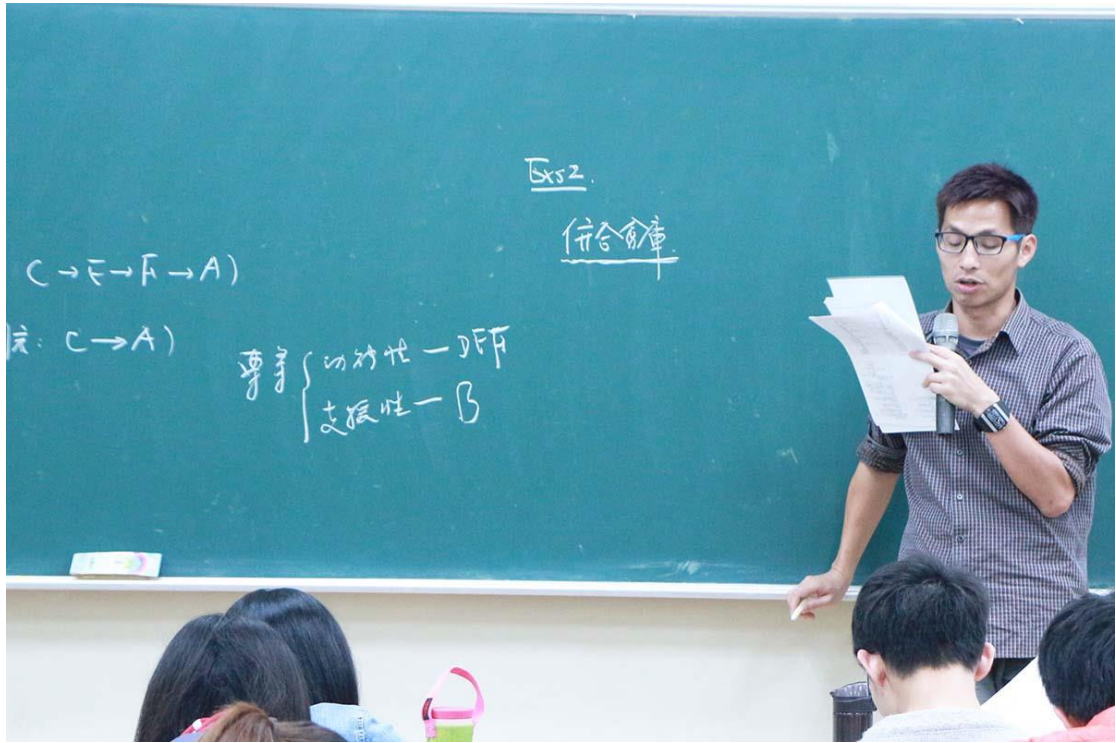 Exs2.
併合倉庫
C→E→F→A)
: C→A)
功続性－DEF
支援性－B